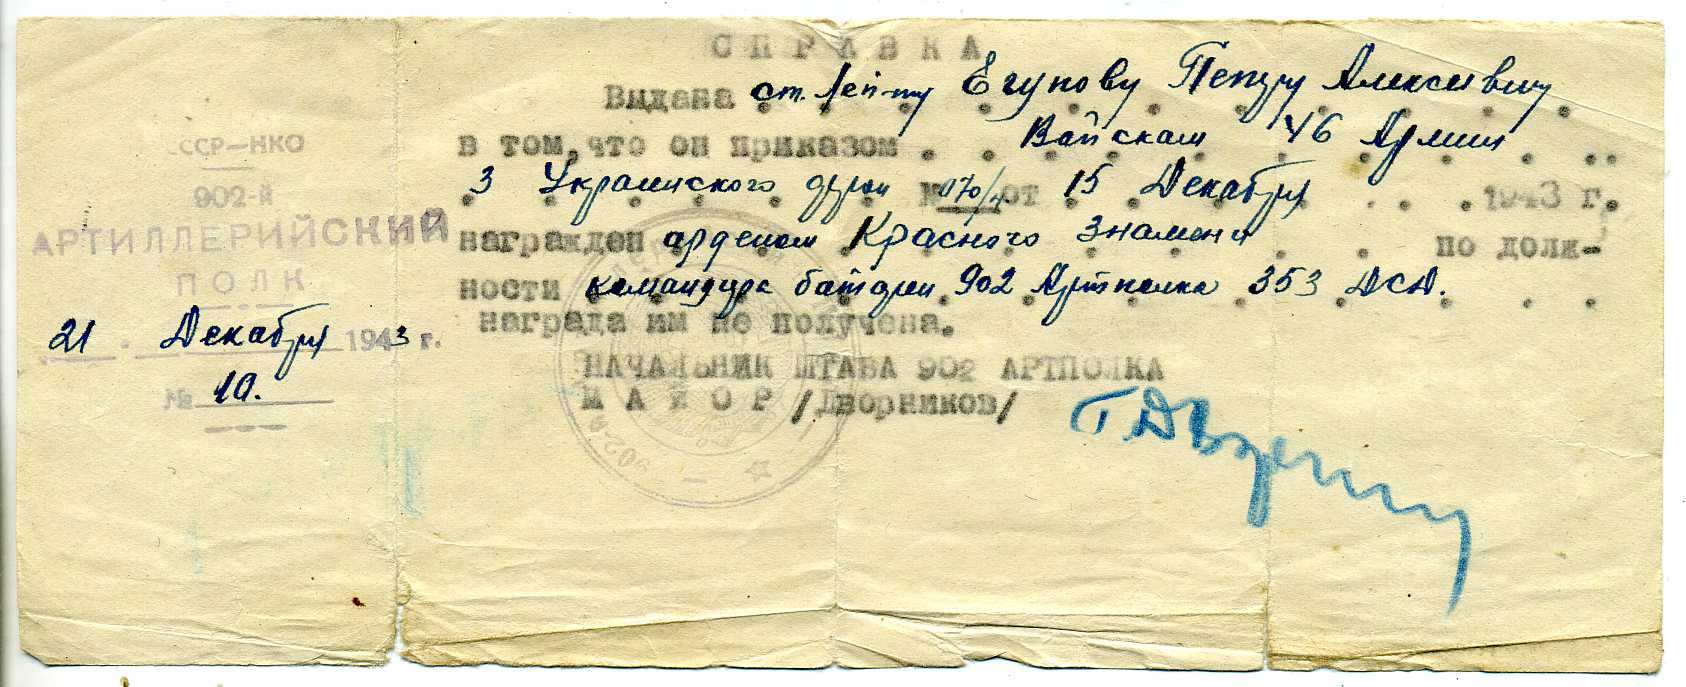 СПРАВКА
Выдана ст. лей-ту Егупову Петру Алексеевичу
в том, что он приказом Войскам 46 Армии
3 Украинского фрон № 170/н от 15 Декабря 1943 г.
награжден орденом Красного Знамени по долж-
ности командира батареи 902 Артполка 353 ДСД.
награда им не получена.
НАЧАЛЬНИК ШТАБА 902 АРТПОЛКА
МАЙОР /Дворников/
ССР—НКО
902-й
АРТИЛЛЕРИЙСКИЙ
ПОЛК
21 Декабря 1943 г.
№ 10.